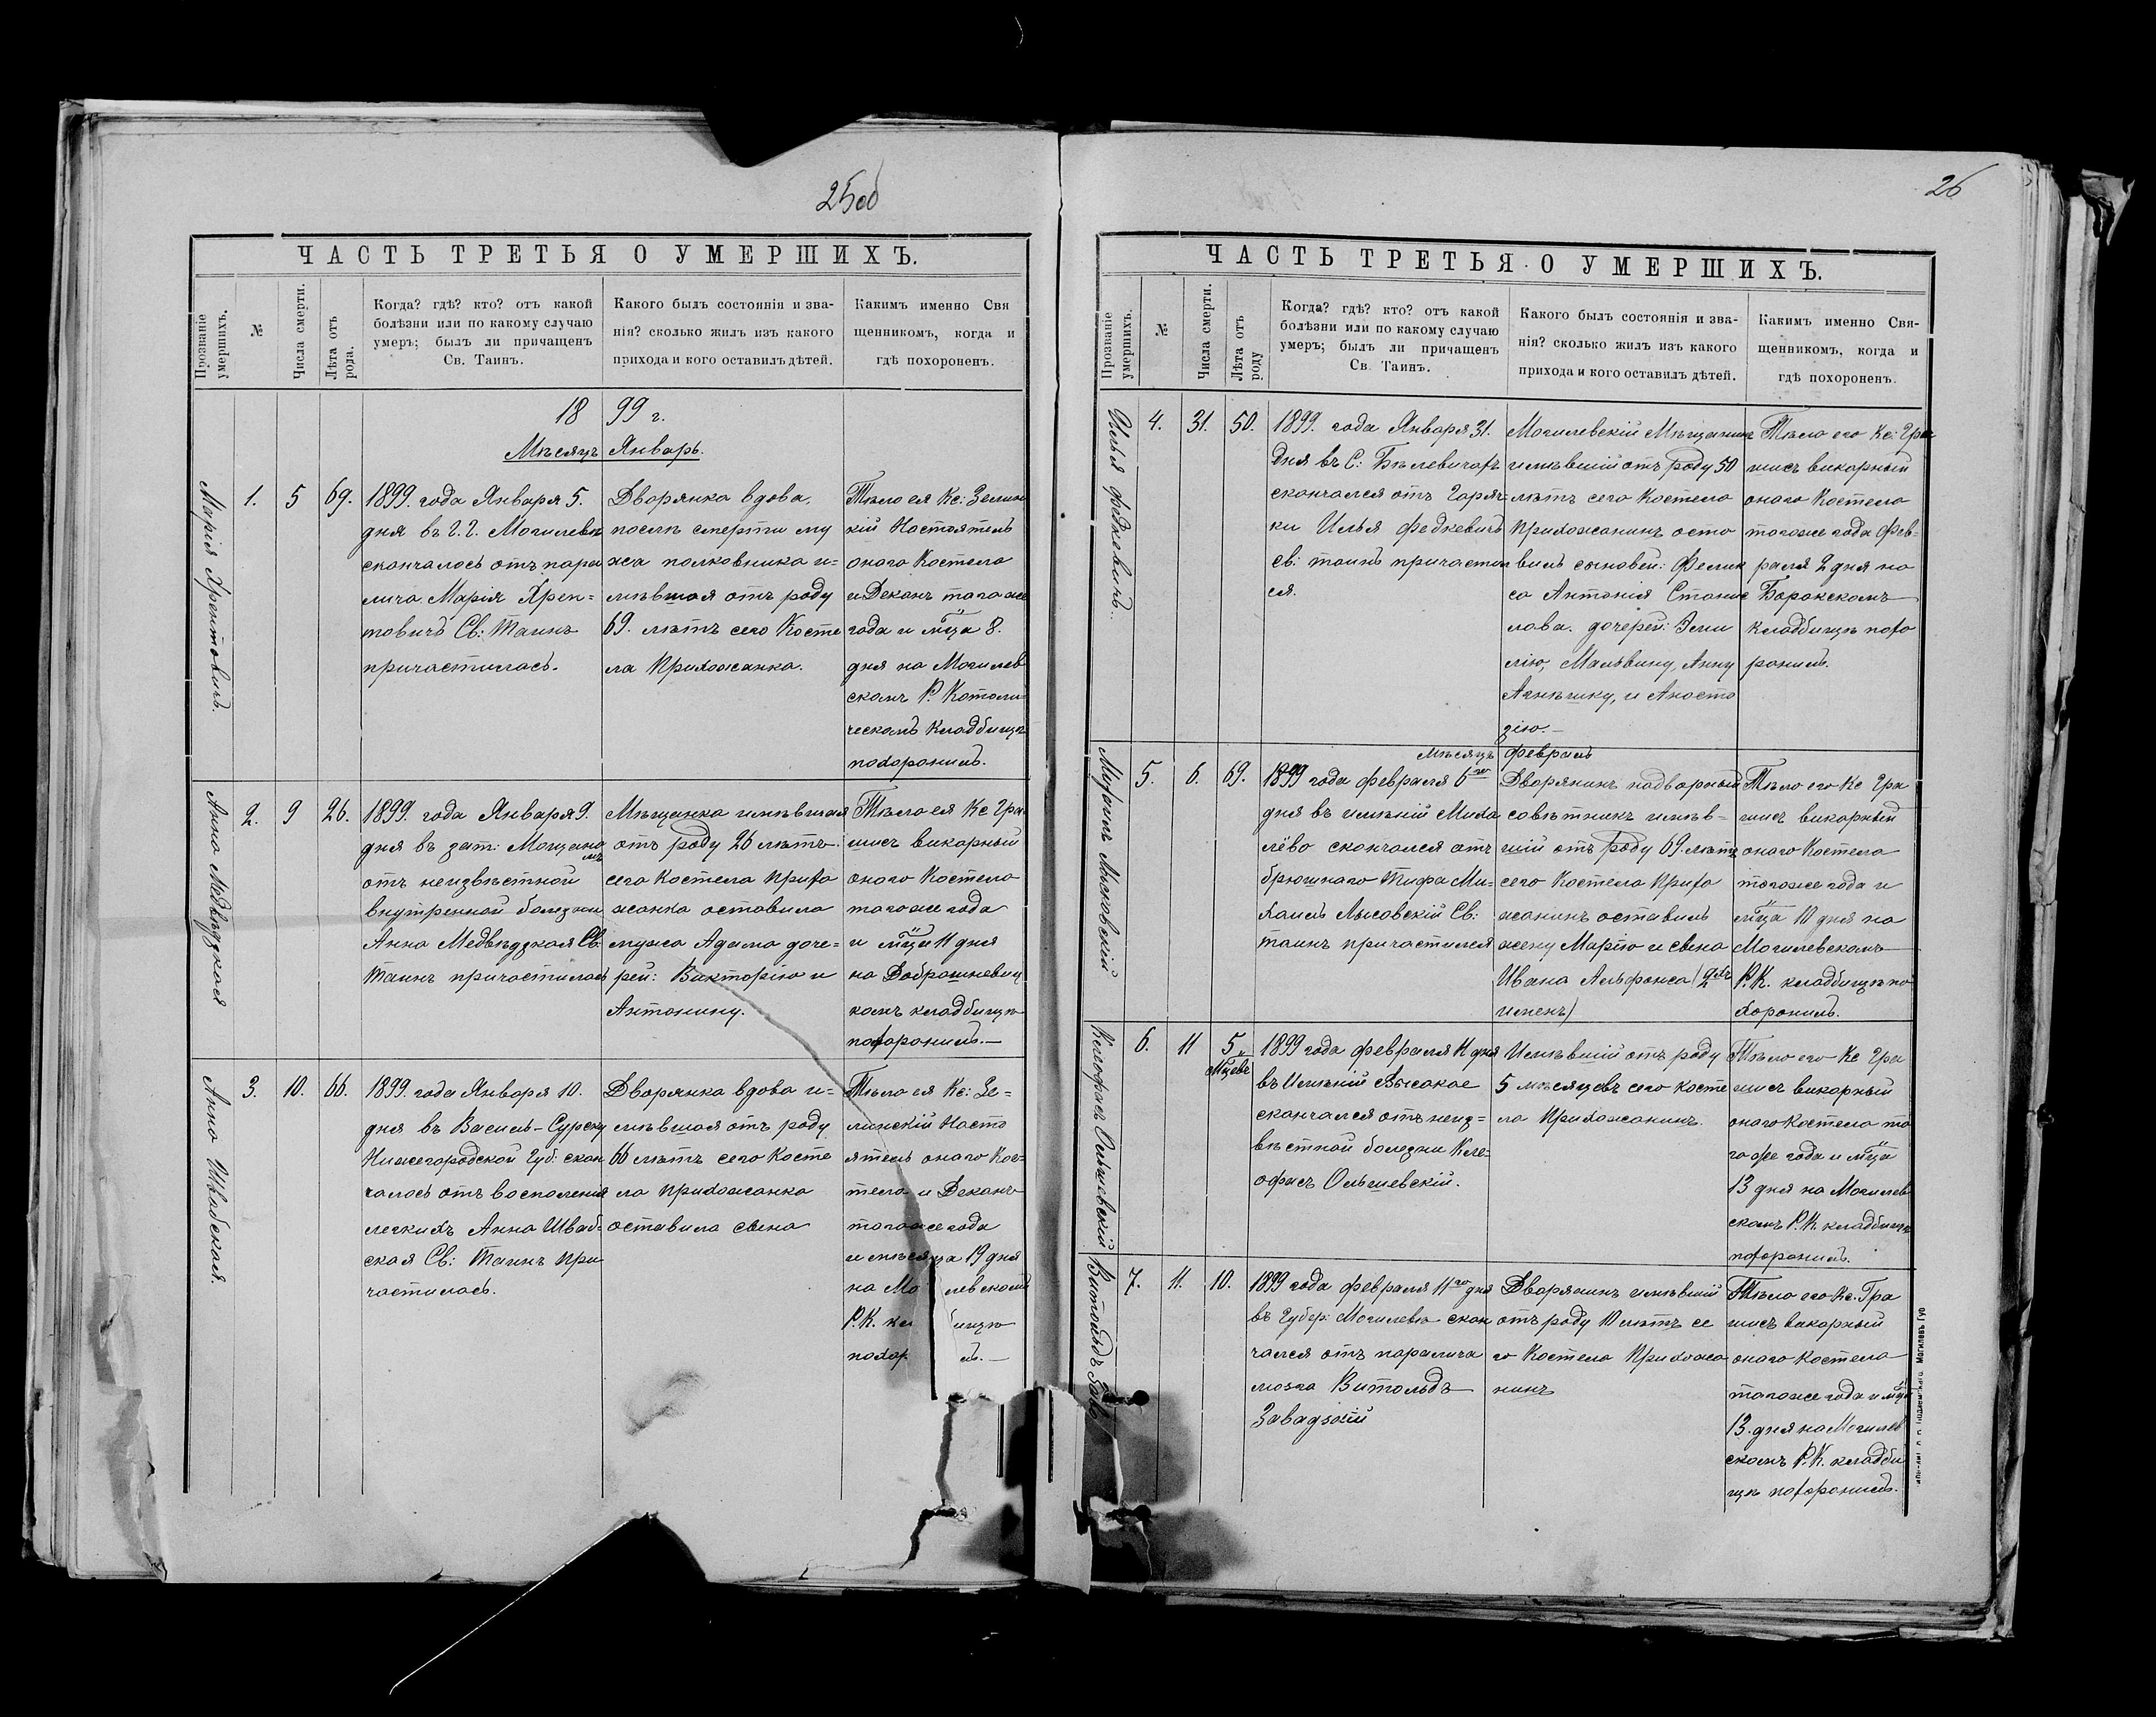 25об
ЧАСТЬ ТРЕТЬЯ О УМЕРШИХЪ.
Прозваніе умершихъ.
№
Числа смерти.
Лѣта отъ рода.
Когда? гдѣ? кто? отъ какой
болѣзни или по какому случаю
умеръ; былъ ли причащенъ
Св. Таинъ.
Какого былъ состоянія и зва-
нія? сколько жилъ изъ какого
прихода и кого оставилъ дѣтей.
Какимъ именно Свя
щенникомъ, когда и
гдѣ похороненъ.
1899 г.
Мѣсяцъ Январь.
Марія Хрептовичъ.
1.
5
69.
1899. года Января 5.
дня въ Г. Г. Могилевѣ
скончалось отъ пара
лича Марія Хреп=
товичъ Св: Таинъ
причастилась.
Дворянка вдова.
послѣ смерти му
жа полковника и-
мѣвшая отъ роду
69. лѣтъ сего Косте
ла Прихожанка.
Тѣло ея Кс: Зелин
кій Настоятель
онаго Костела
и Деканъ того же
года и м̃ца 8.
дня на Могилев
скомъ Р. Католи
ческомъ Кладбищѣ
похоронилъ.
Анна Медвѣдзкая
2.
9
26.
1899. года Января 9.
дня въ заст: Мощано
мъ
отъ неизвѣстной
внутренной болезни
Анна Медвѣдзкая Св:
Таинъ причастилась
Мѣщанка имѣвшая
отъ роду 26 лѣтъ
сего Костела Прихо
жанка оставила
мужа Адама доче=
рей: Викторію и
Антонину.
Тѣло ея Кс Гра
шисъ викарный
онаго Костела
тогоже года
и м̃ца 11 дня
на Доброшневиц
комъ кладбищѣ
похоронилъ.—
Анна Швабская.
3.
10.
66.
1899. года Января 10.
дня въ Василь-Сурску
Нижегородской Губ: скон
чалось отъ воспаленія
легкихъ Анна Шваб-
ская Св: Таинъ при
частилась.
Дворянка вдова и=
мѣвшая отъ роду
66 лѣтъ сего Косте
ла прихожанка
оставила сына
Тѣло ея Кс: Зе=
линскій Насто
ятель онаго Кос-
тела и Деканъ
тогоже года
и мѣсяца 19 дня
на Мо левскомъ
Р. К. кл бищѣ
похор лъ.—
26
ЧАСТЬ ТРЕТЬЯ О УМЕРШИХЪ.
Прозваніе умершихъ.
№
Числа смерти.
Лѣта отъ роду
Когда? гдѣ? кто? отъ какой
болѣзни или по какому случаю
умеръ; былъ ли причащенъ
Св. Таинъ.
Какого былъ состоянія и зва-
нія? сколько жилъ изъ какого
прихода и кого оставилъ дѣтей.
Какимъ именно Свя-
щенникомъ, когда и
гдѣ похороненъ.
Илья Федкевичъ.
4.
31.
50.
1899. года Января 31.
дня въ С: Бѣлевичахъ
скончался отъ Горяч-
ки Илья Федкевичъ
Св: таинъ причастил
ся.
Могилевскій Мѣщанинъ
имѣвшій отъ роду 50
лѣтъ сего Костела
Прихожанинъ оста
вилъ сыновей: Фелик
са Антонія Станис
лава. дочерей: Эми
лію, Мальвину, Анну
Агнѣшку, и Анаста
зію.—
Тѣло его Кс: Гра
шисъ викарный
онаго Костела
тогоже года Фев-
раля 2 дня на
Боракскомъ
Кладбищѣ похо
ронилъ.
мѣсяцъ февраль
Михаилъ Лысовскій
5.
6.
69.
1899 года февраля 6го
дня въ имѣніи Миха
лёво скончался отъ
брюшнаго тифа Ми=
хаилъ Лысовскій Св:
таинъ причастился
Дворянинъ надворный
совѣтникъ имѣв-
шій отъ роду 69 лѣтъ
сего Костела Прихо
жанинъ оставилъ
жену Марію и сына
Ивана Альфонса (2хъ
именъ)
Тѣло его Кс Гра
шисъ викарный
онаго Костела
тогоже года и
м̃ца 10 дня на
Могилевскомъ
Р. К. кладбищѣ по
хоронилъ.
Клеофасъ Ольшевскій
6.
11
5
м̃цевъ
1899 года февраля 11 дня
въ Имѣніи Высокое
скончался отъ неиз=
вѣстной болезни Кле-
офасъ Ольшевскій.
Имѣвшій отъ роду
5 мѣсяцевъ сего Косте
ла прихожанинъ.
Тѣло его Кс Гра
шисъ викарный
онаго Костела то
го же года и м̃ца
13 дня на Могилев
скомъ Р. К. кладбищѣ
похоронилъ.
Витольдъ Заво
7.
11.
10.
1899 года февраля 11го дня
въ Губер: Могилевѣ скон
чался отъ паралича
мозга Витольдъ
Завадзкій
Дворянинъ имѣвшій
отъ роду 10 лѣтъ се
го Костела Прихожа
нинъ
Тѣло его Кс. Гра
шисъ викарный
онаго Костела
тогоже года и м̃ца
13. дня на Могилев
скомъ Р. К. кладби
щѣ похоронилъ.
Могилевъ Губ